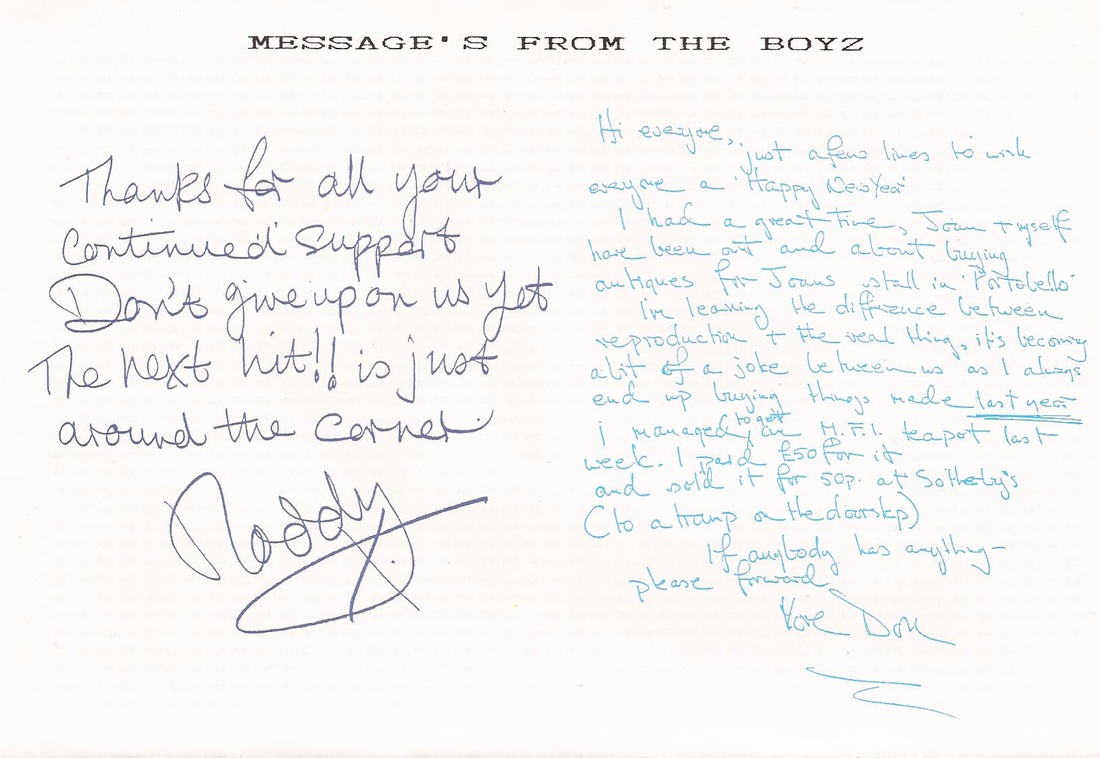 MESSAGE'S FROM THE BOYZ
Thanks for all your
continued support
Don't give up on us yet
The next hit!! is just
around the corner.
Roddy
Hi everyone,
just a few lines to wish
everyone a 'Happy New Year'
I had a great time, Joan + myself
have been out and about buying
antiques for Joans stall in 'Portobello'
I'm learning the difference between
reproduction + the real thing, it's becoming
a bit of a joke between us as I always
end up buying things made last year
i managed to get an M.F.I. teapot last
week. I paid £50 for it
and sold it for 50p. at Sotheby's
(to a tramp on the doorstep)
If anybody has anything -
please forward
Love Don